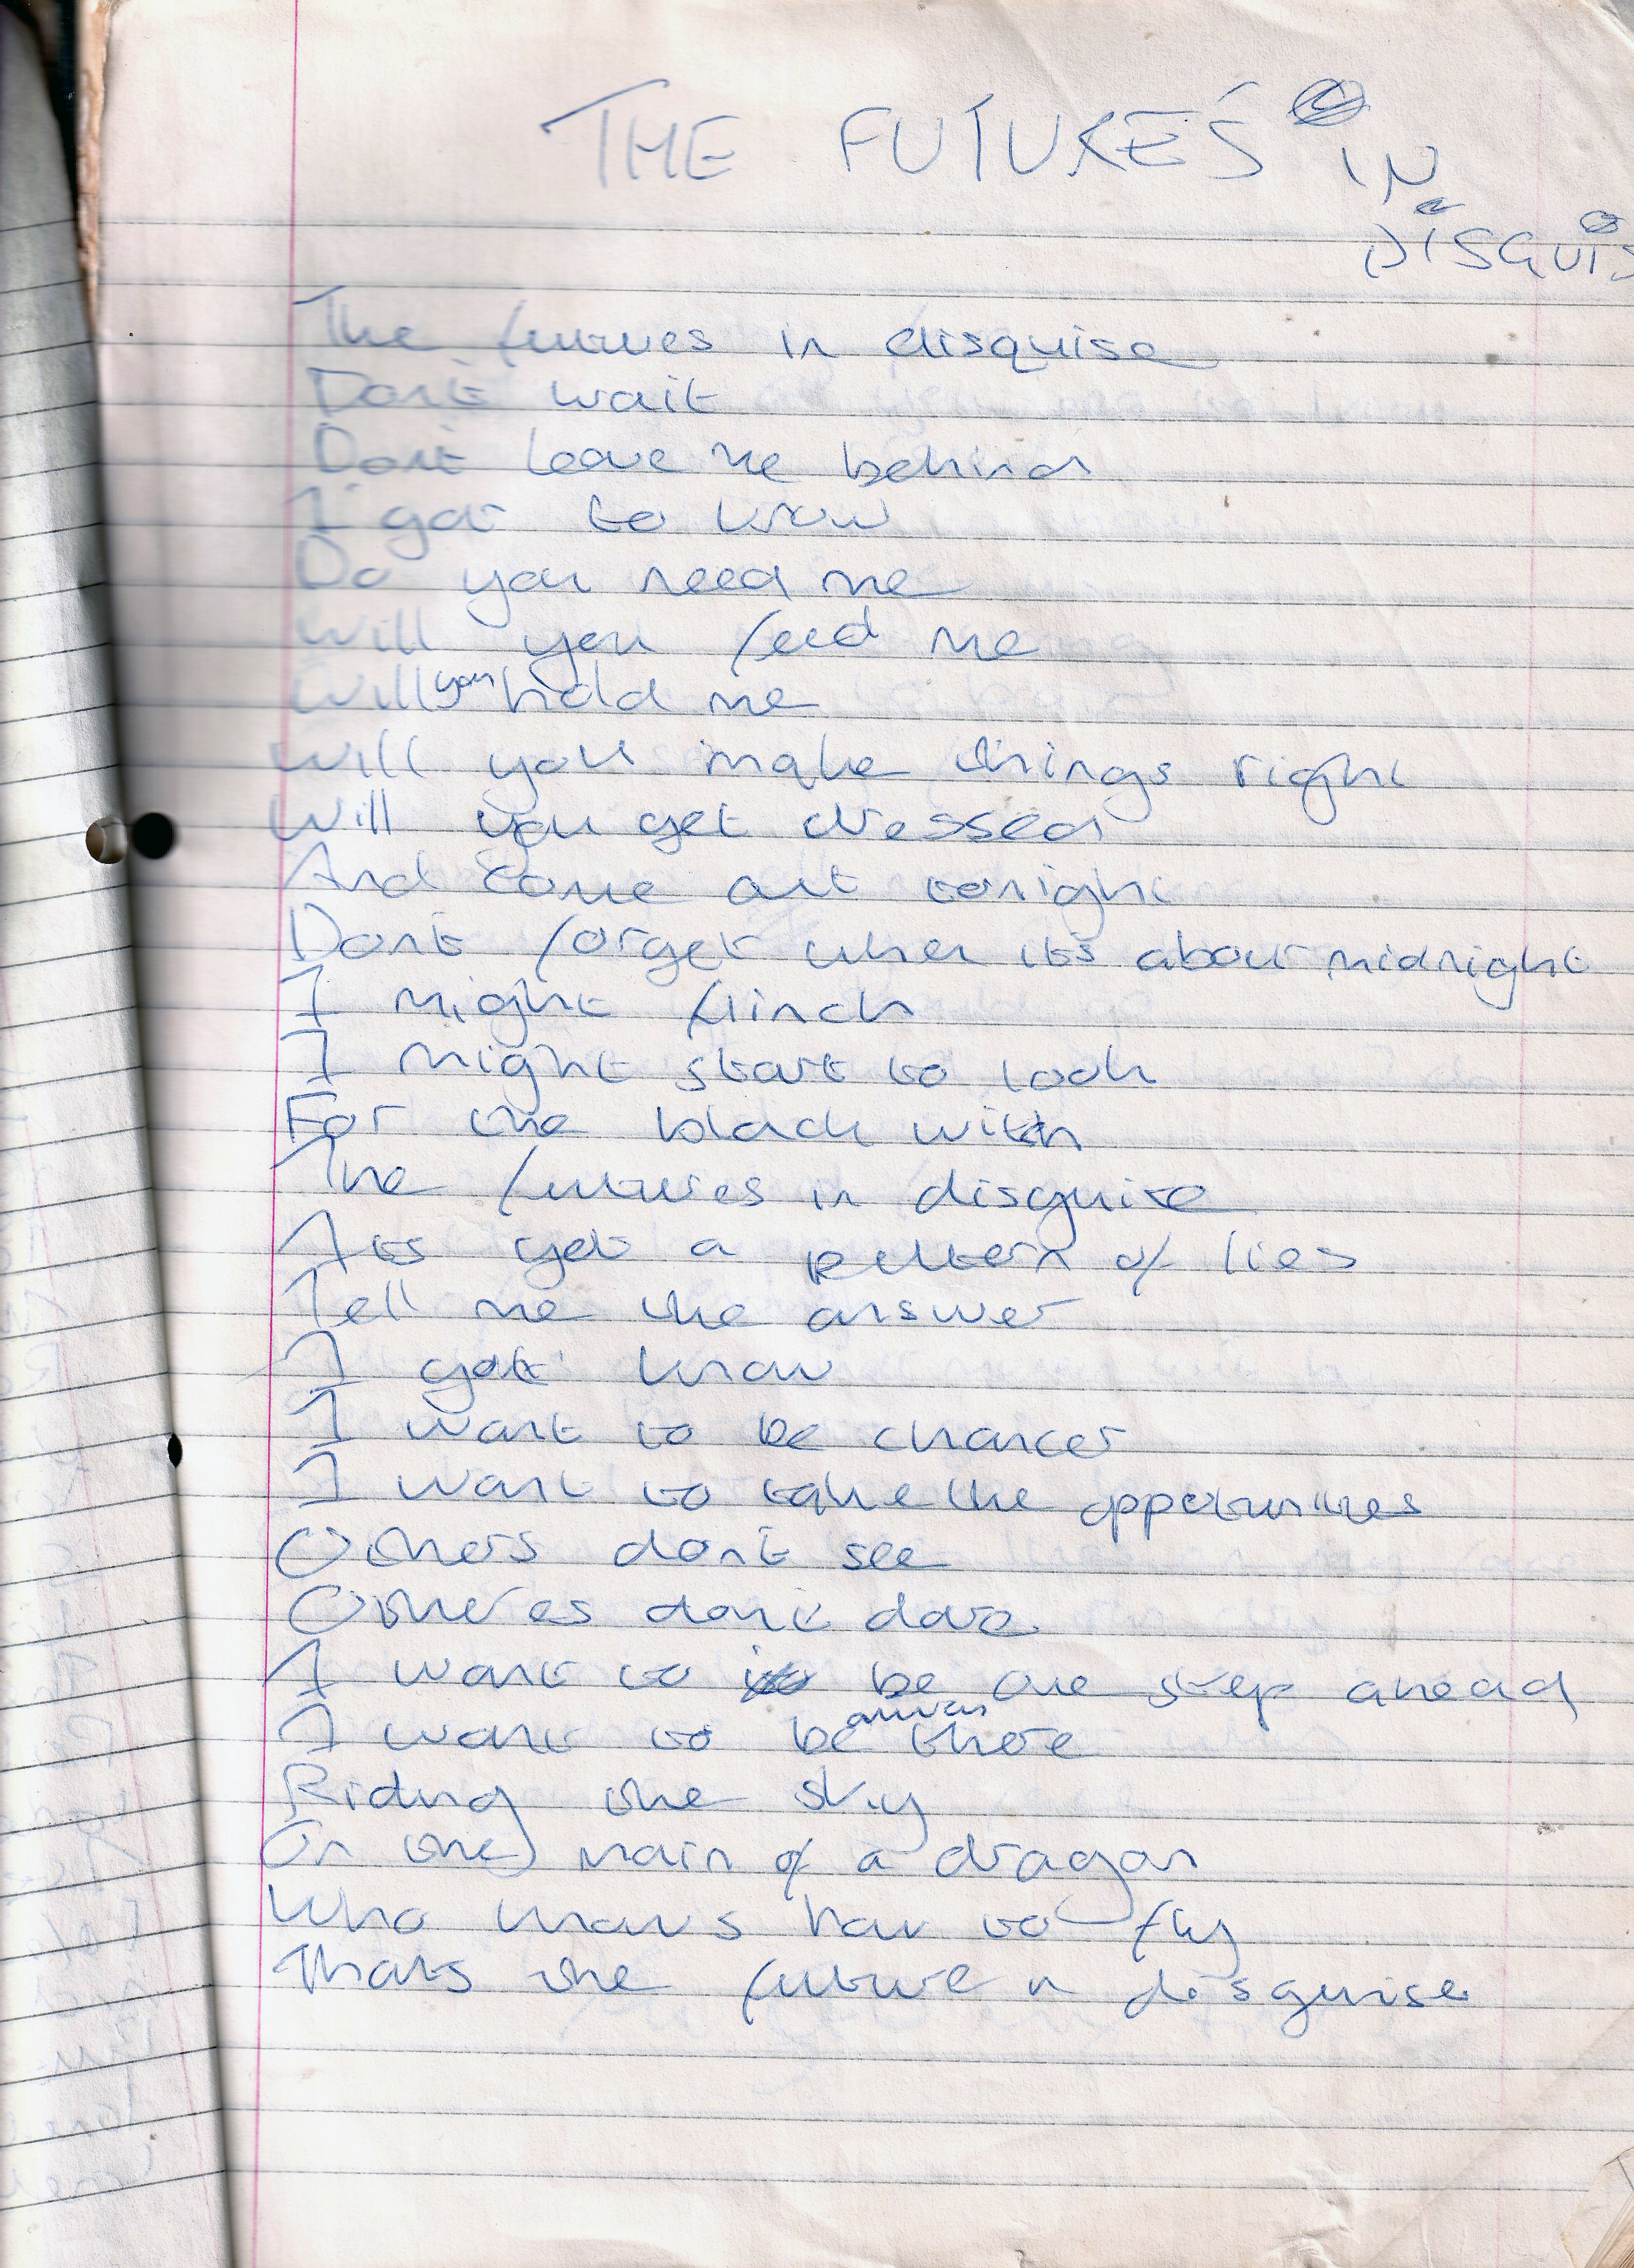 THE FUTURE'S IN
DISGUIS
The futures in disguise
Don't wait
Don't leave me behind
I got to know
Do you need me
Will you feed me
Will you hold me
Will you make things right
Will you get dressed
And come out tonight
Dont forget when its about midnight
I might flinch
I might start to look
For the black witch
The futures in disguise
Its got a pattern of lies
Tell me the answer
I gott know
I want to be chancer
I want to take the oppotunities
Others dont see
Otheres dont dare
I want to be one step ahead
I want to be there
Riding the sky
On the main of a dragon
Who knows how to fly
Thats the future in disguise